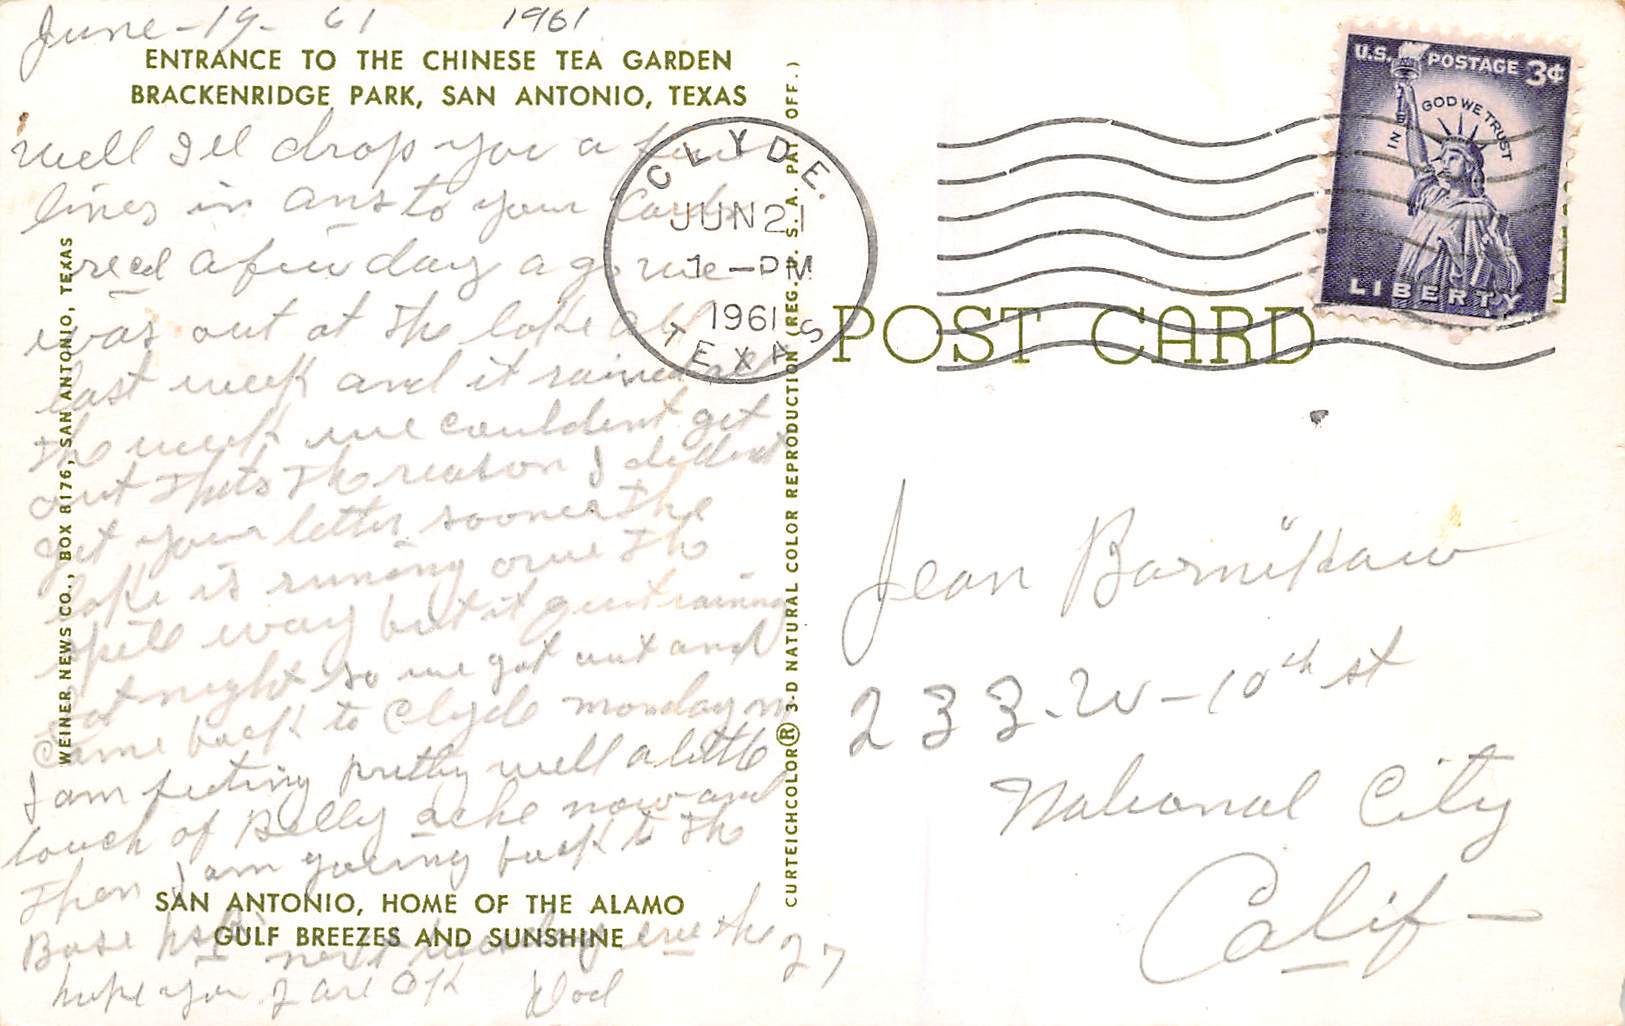 June-19-61 1961
ENTRANCE TO THE CHINESE TEA GARDEN
BRACKENRIDGE PARK, SAN ANTONIO, TEXAS
Well I ell drop you a few
lines in ans to your Card
recd a few day ago we
was out at the lake all
last week and it rained all
the week we couldent get
out thats the reason I dident
get your letter sooner the
lake is runing over the
spill way but it quit raining
at night so we got out and
came back to Clyde monday
I am feeling pretty well a little
touch of Belly ache now and
then I am going back to the
Base next the 27
hope you 2 are OK Dad
SAN ANTONIO, HOME OF THE ALAMO
GULF BREEZES AND SUNSHINE
WEINER NEWS CO., BOX 8176, SAN ANTONIO, TEXAS
CURTEICHCOLOR® 3-D NATURAL COLOR REPRODUCTION (REG. U. S. A. PAT. OFF.)
CLYDE.
JUN 21
1-PM
1961
TEXAS
U.S. POSTAGE 3¢
IN GOD WE TRUST
LIBERTY
POST CARD
Jean Barnikaw
233-W-10th st
National City
Calif-